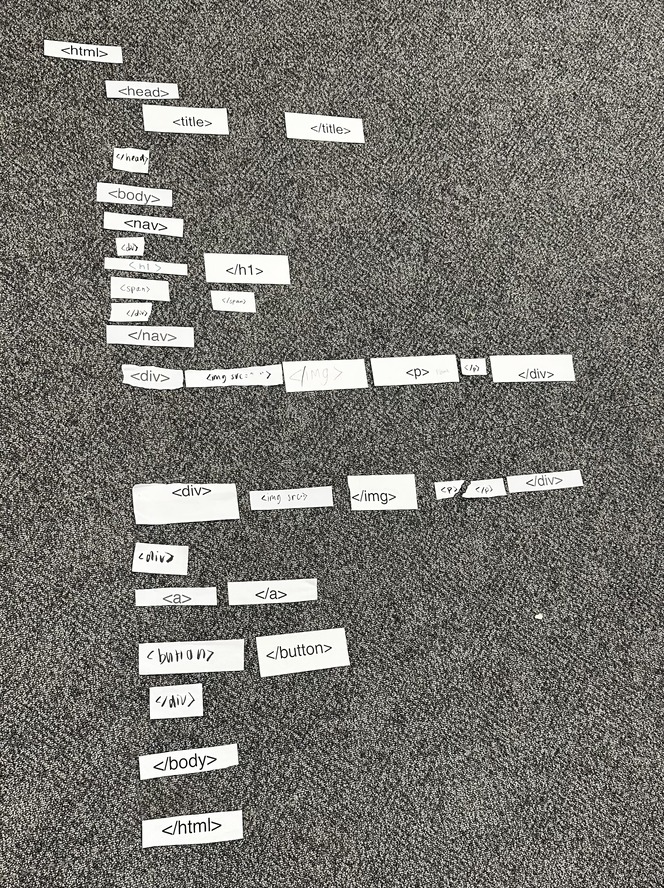 <html>
<head>
<title> </title>
</head>
<body>
<nav>
<div>
<h1> </h1>
<span> </span>
</div>
</nav>
<div> <img src= > </img> <p> </p> </div>
<div> <img src> </img> <p> </p> </div>
<div>
<a> </a>
<button> </button>
</div>
</body>
</html>